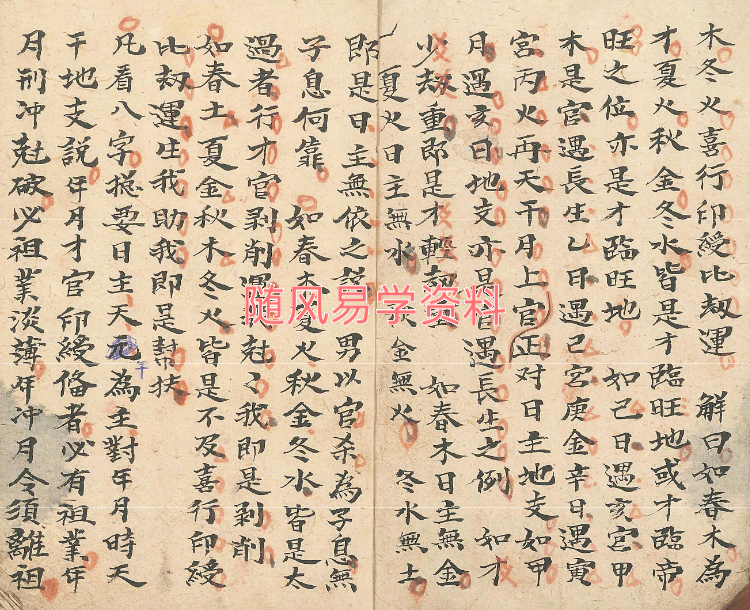 木冬火喜行印綬比刼運　解曰如春木為
才夏火秋金冬水皆是才臨旺地或才臨帝
旺之位亦是才臨旺地　如己日遇亥宮甲
木是官遇長生乙日遇巳宮庚金辛日遇寅
宮丙火再天干月上官正对日主地支如甲
月遇亥日地支亦是官遇長生之例　如才
少刼重即是才輕刼　如春木日主無金
夏火日主無水　秋金無火　冬水無土
即是日主無依之　男以官杀為子息無
子息何靠　如春木夏火秋金冬水皆是太
過者行才官剥削運　尅尅我即是剥削
如春土夏金秋木冬火皆是不及喜行印綬
比刼運生我助我即是幫扶
凢看八字搃要日主天元為主對年月時天
干
干地支說年月才官印綬俻者必有祖業年
月刑冲尅破必祖業淡薄年冲月令須離祖
随风易学资料